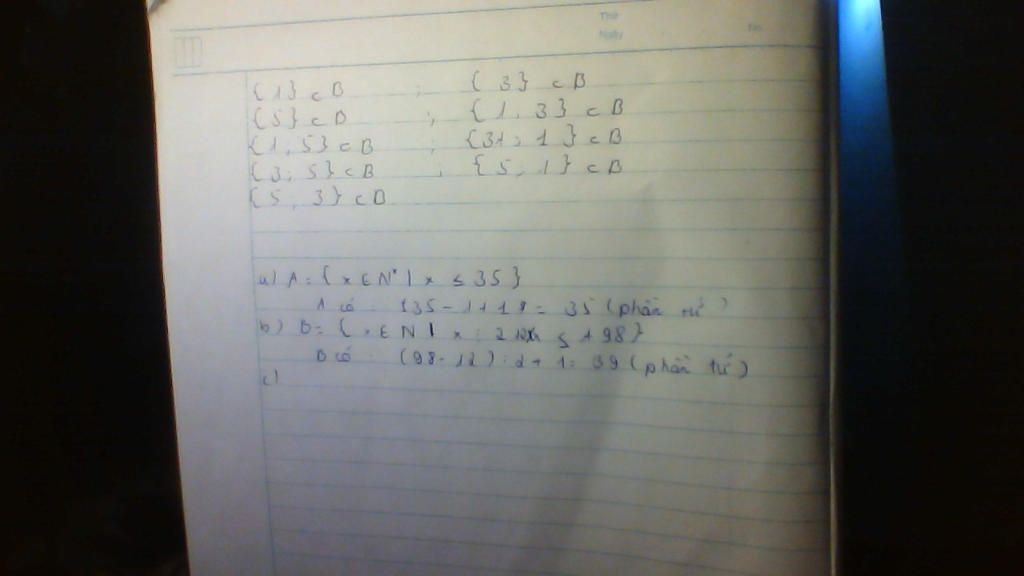 Thứ
Ngày No.
{1} ⊂ B ; {3} ⊂ B
{5} ⊂ B ; {1, 3} ⊂ B
{1, 5} ⊂ B ; {31, 1} ⊂ B
{3; 5} ⊂ B ; {5, 1} ⊂ B
{5, 3} ⊂ B
a) A = { x ∈ N* | x ≤ 35 }
A có : (35 - 1 + 1 = 35 (phần tử)
b) B = { x ∈ N | x : 2 ≤ 98}
B có : (98 - 12) : 2 + 1 = 39 (phần tử)
c)